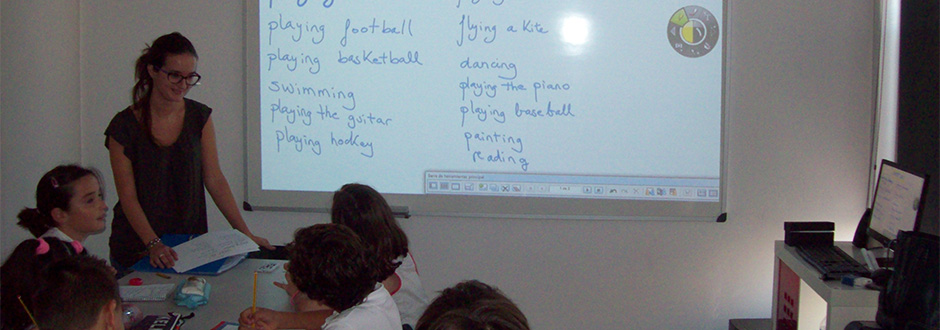 playing
playing football
playing basketball
swimming
playing the guitar
playing hockey
flying a kite
dancing
playing the piano
playing baseball
painting
reading
Barra de herramientas principal